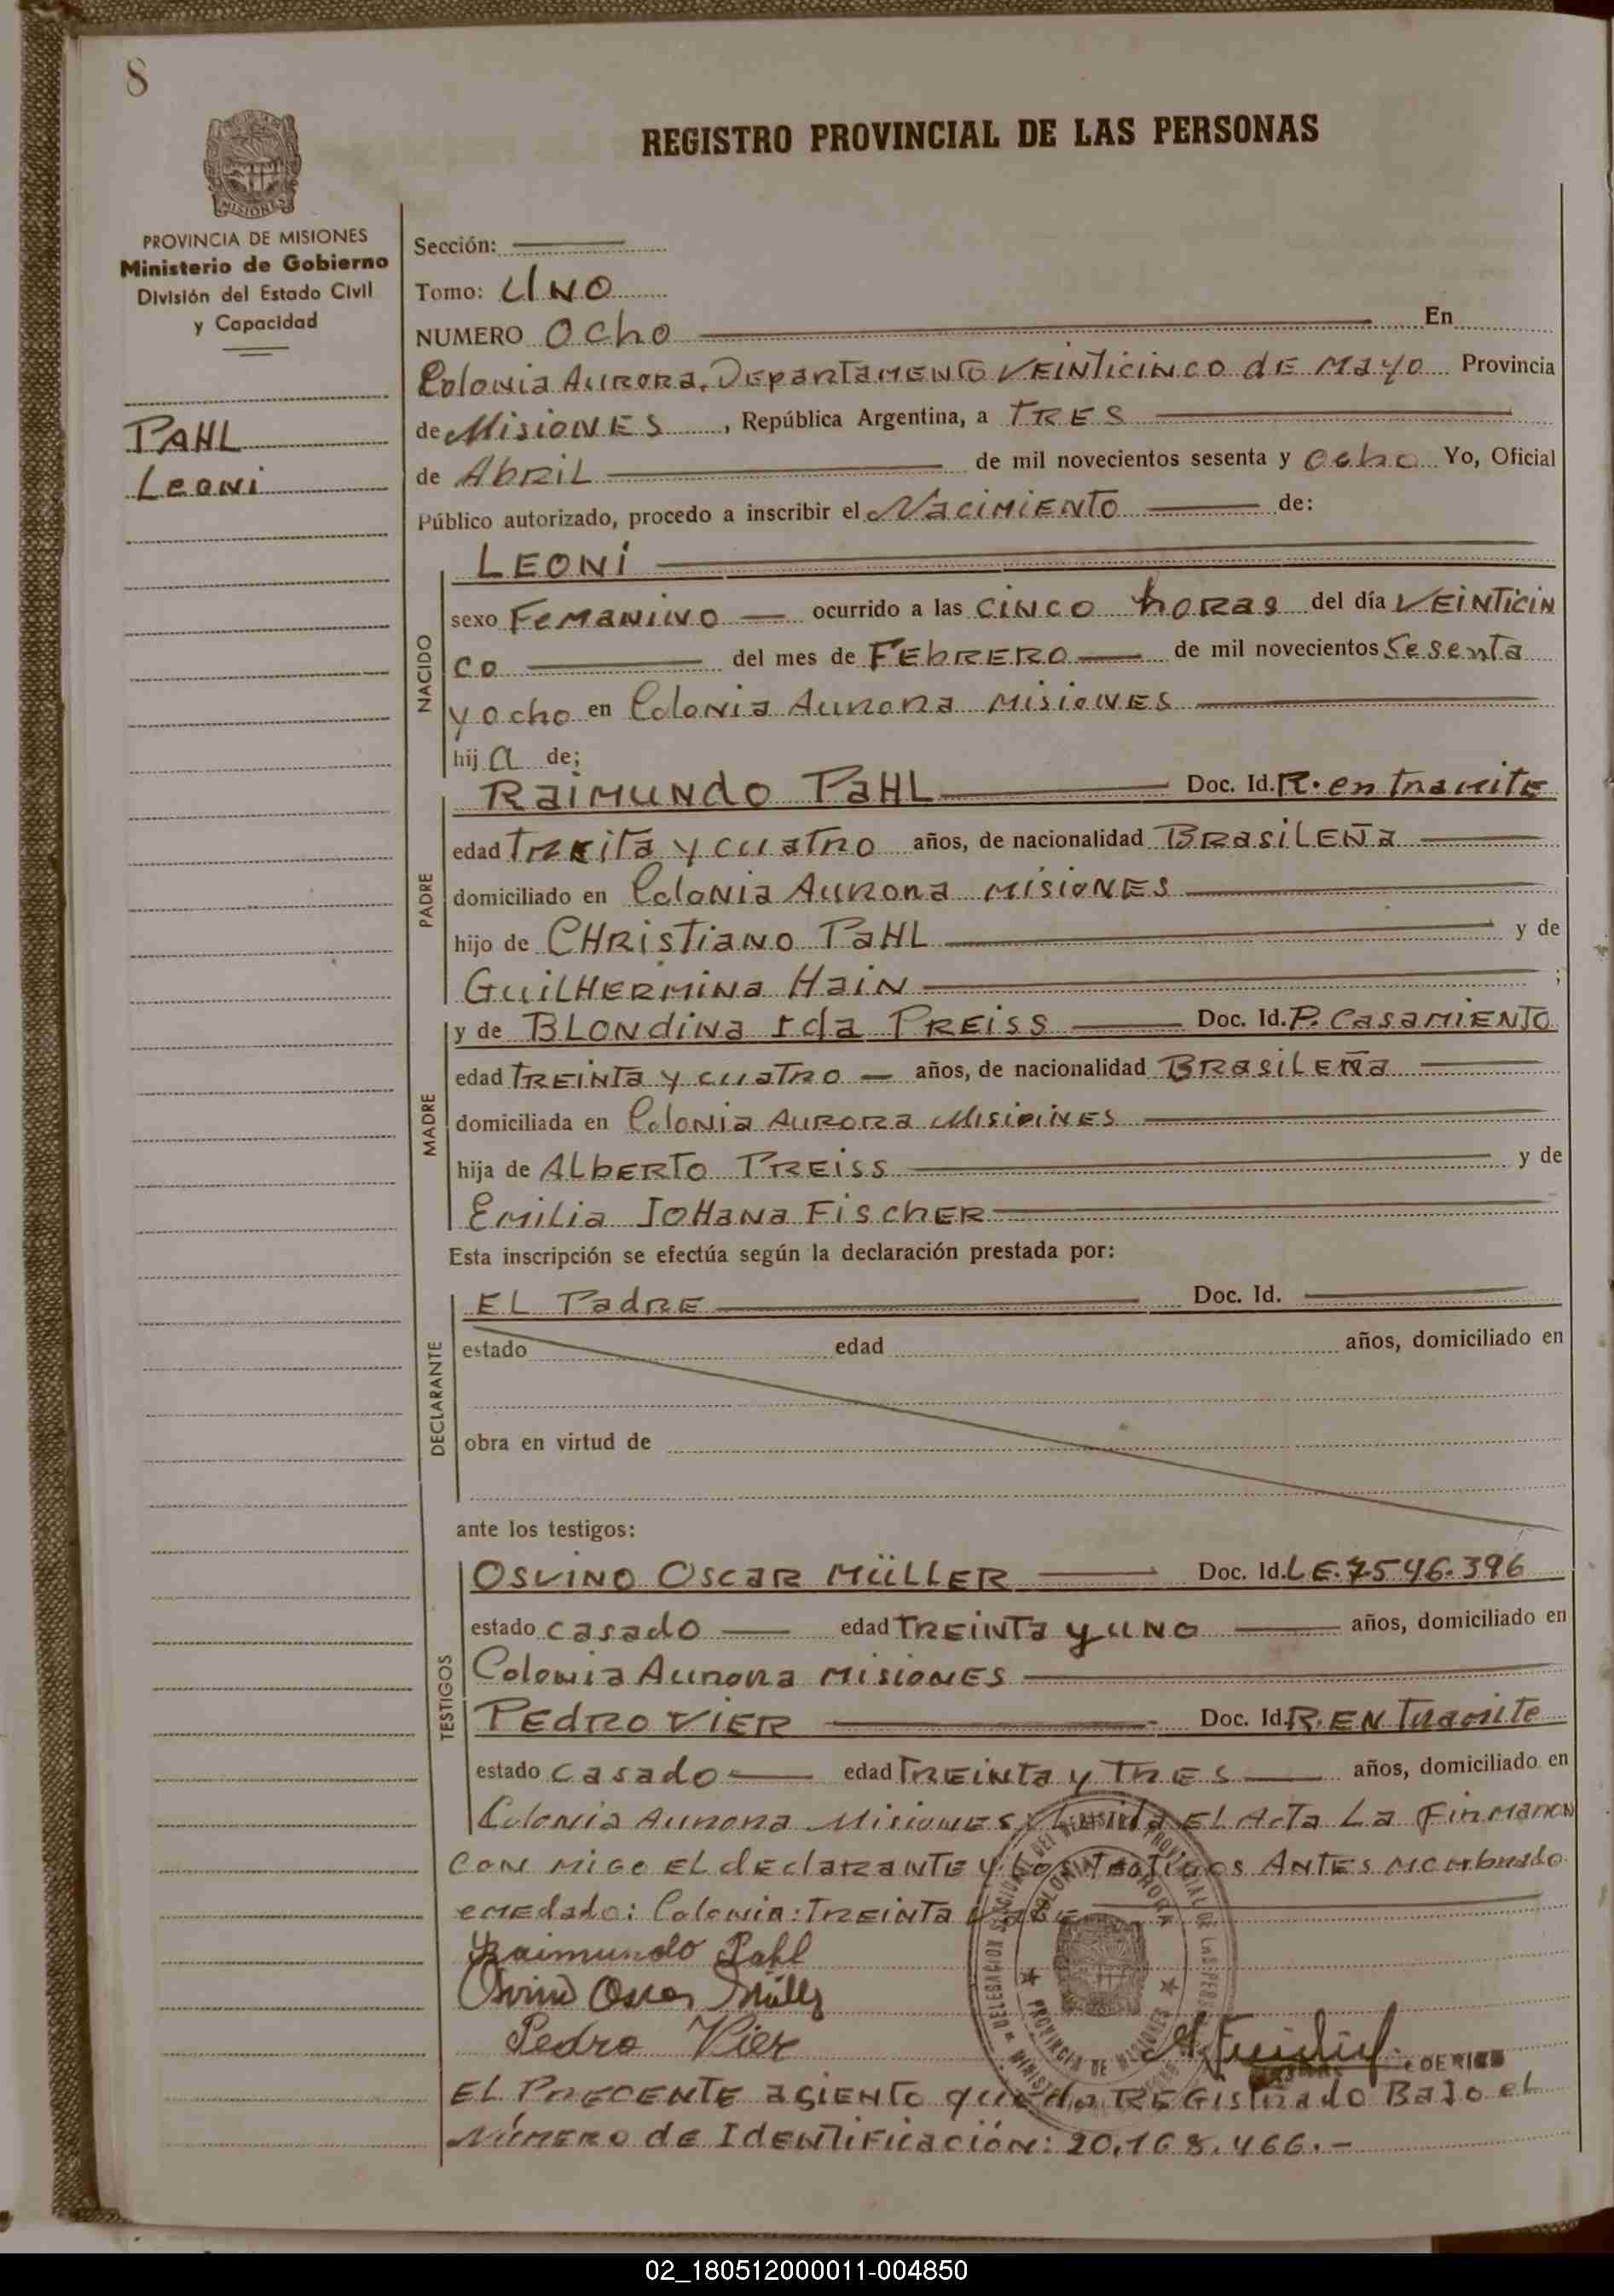 8
REGISTRO PROVINCIAL DE LAS PERSONAS
MISIONES
PROVINCIA DE MISIONES
Ministerio de Gobierno
División del Estado Civil
y Capacidad
PAHL
Leoni
Sección:
Tomo: UNO
NUMERO Ocho En
Colonia Aurora, Departamento VEINTICINCO de Mayo Provincia
de Misiones, República Argentina, a TRES
de Abril de mil novecientos sesenta y ocho Yo, Oficial
Público autorizado, procedo a inscribir el Nacimiento de:
NACIDO
LEONI
sexo Femanino ocurrido a las cinco horas del día VEINTICIN
co del mes de Febrero de mil novecientos Sesenta
y ocho en Colonia Aurora Misiones
hija de;
PADRE
Raimundo PaHL Doc. Id. R. en tramite
edad treita y cuatro años, de nacionalidad Brasileña
domiciliado en Colonia Aurora Misiones
hijo de CHristiano PaHL y de
GuilHermina Hain ;
MADRE
y de BLondina Ida PREiss Doc. Id. P. Casamiento
edad TREINTA y cuatro años, de nacionalidad Brasileña
domiciliada en Colonia Aurora Misioines
hija de ALberto PREiss y de
Emilia JoHana Fischer
Esta inscripción se efectúa según la declaración prestada por:
DECLARANTE
EL Padre Doc. Id.
estado edad años, domiciliado en
obra en virtud de
ante los testigos:
TESTIGOS
OSVINO OSCAR MÜLLER Doc. Id. L E. 7.546.396
estado casado edad TREINTA y uno años, domiciliado en
Colonia Aurora Misiones
PEdRO VIER Doc. Id. R. EN Tramite
estado casado edad Treinta y Tres años, domiciliado en
Colonia Aurora Misiones y Leida EL Acta La Firmaron
con migo EL declarante y Los Testigos Antes
emedado: Colonia: TREINTA
Raimundo Pahl
Osvino Oscar Müller
Pedro Vier
COLONIA AURORA
PROVINCIA DE MISIONES
EL Precente asiento queda Registrado Bajo el
Número de Identificación: 20.168.466.-
02_180512000011-004850